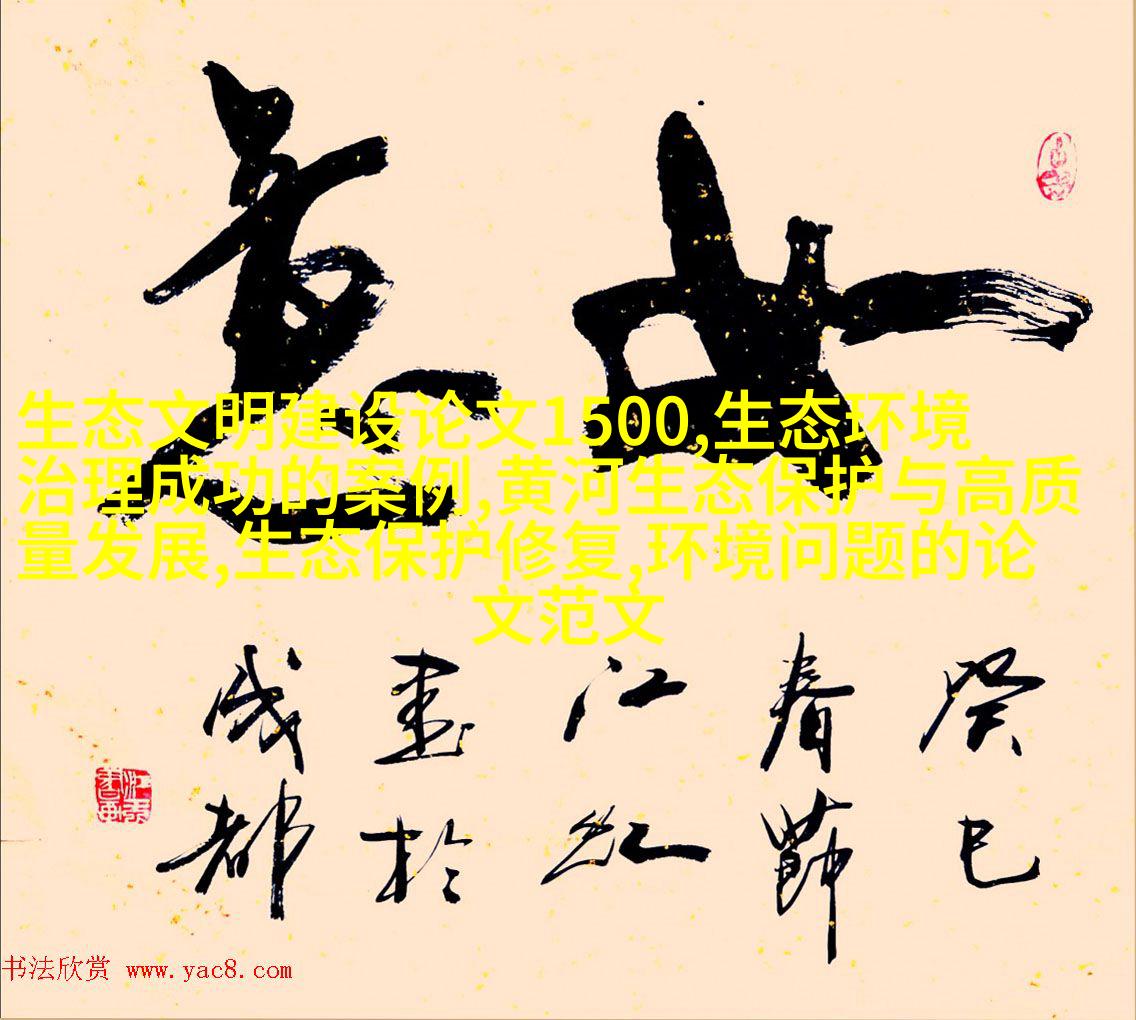 如意
生态文明建设论文1500,生态环境
治理成功的案例,黄河生态保护与高质
量发展,生态保护修复,环境问题的论
文范文
癸巳
春節
江红
書於
成都
书法欣赏 www.yac8.com